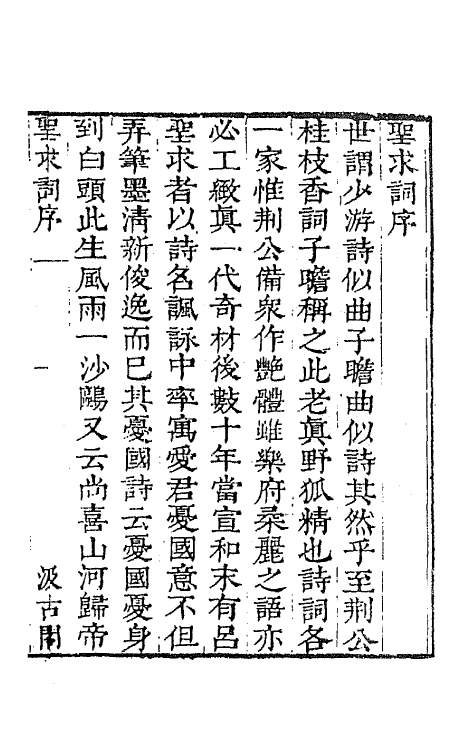 聖求詞序
世謂少游詩似曲子瞻曲似詩其然乎至荆公
桂枝香詞子瞻稱之此老眞野狐精也詩詞各
一家惟荆公備衆作艷體雖樂府柔麗之語亦
必工緻眞一代奇材後數十年當宣和末有呂
聖求者以詩名諷詠中率寓愛君憂國意不但
弄筆墨淸新俊逸而已其憂國詩云憂國憂身
到白頭此生風雨一沙鷗又云尚喜山河歸帝
聖求詞序 一 汲古閣